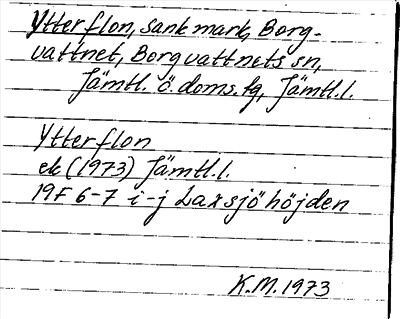 Ytterflon, sank mark, Borg-
vattnet, Borgvattnets sn,
Jämtl. ö. doms. fg, Jämtl. l.
Ytterflon
ek (1973) Jämtl. l.
19F 6-7 i-j Laxsjöhöjden
K.M. 1973